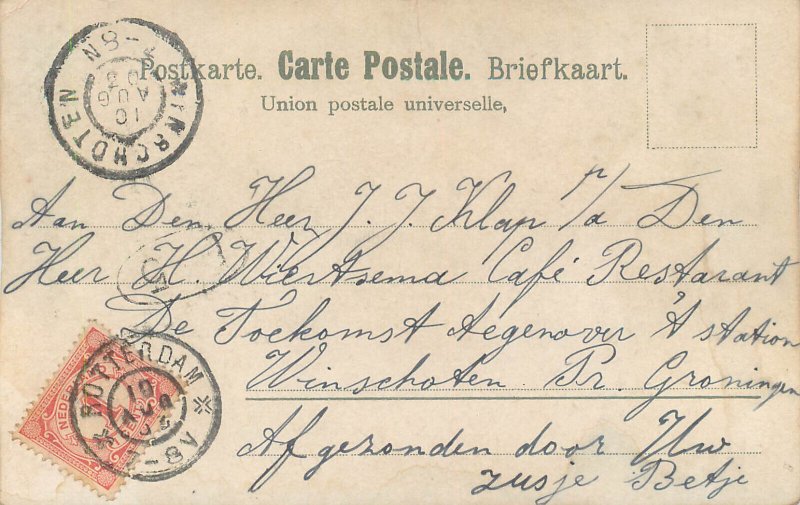 Postkarte. Carte Postale. Briefkaart.
Union postale universelle,
WINSCHOTEN
10
AUG
Aan Den Heer J. J. Klap p/a Den
Heer H. Wiertsema Café Restarant
De Toekomst tegenover 't station
Winschoten Pr. Groningen
Afgezonden door Uw
zusje Betje
ROTTERDAM
10
AUG
NEDER